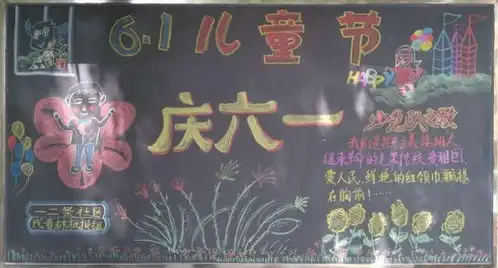 6.1儿童节
HAPPY
庆六一
少先队之歌
我们是共产主义接班人
继承革命的光荣传统,爱祖国,
爱人民,鲜艳的红领巾飘扬
在胸前!……
条社区
板报组